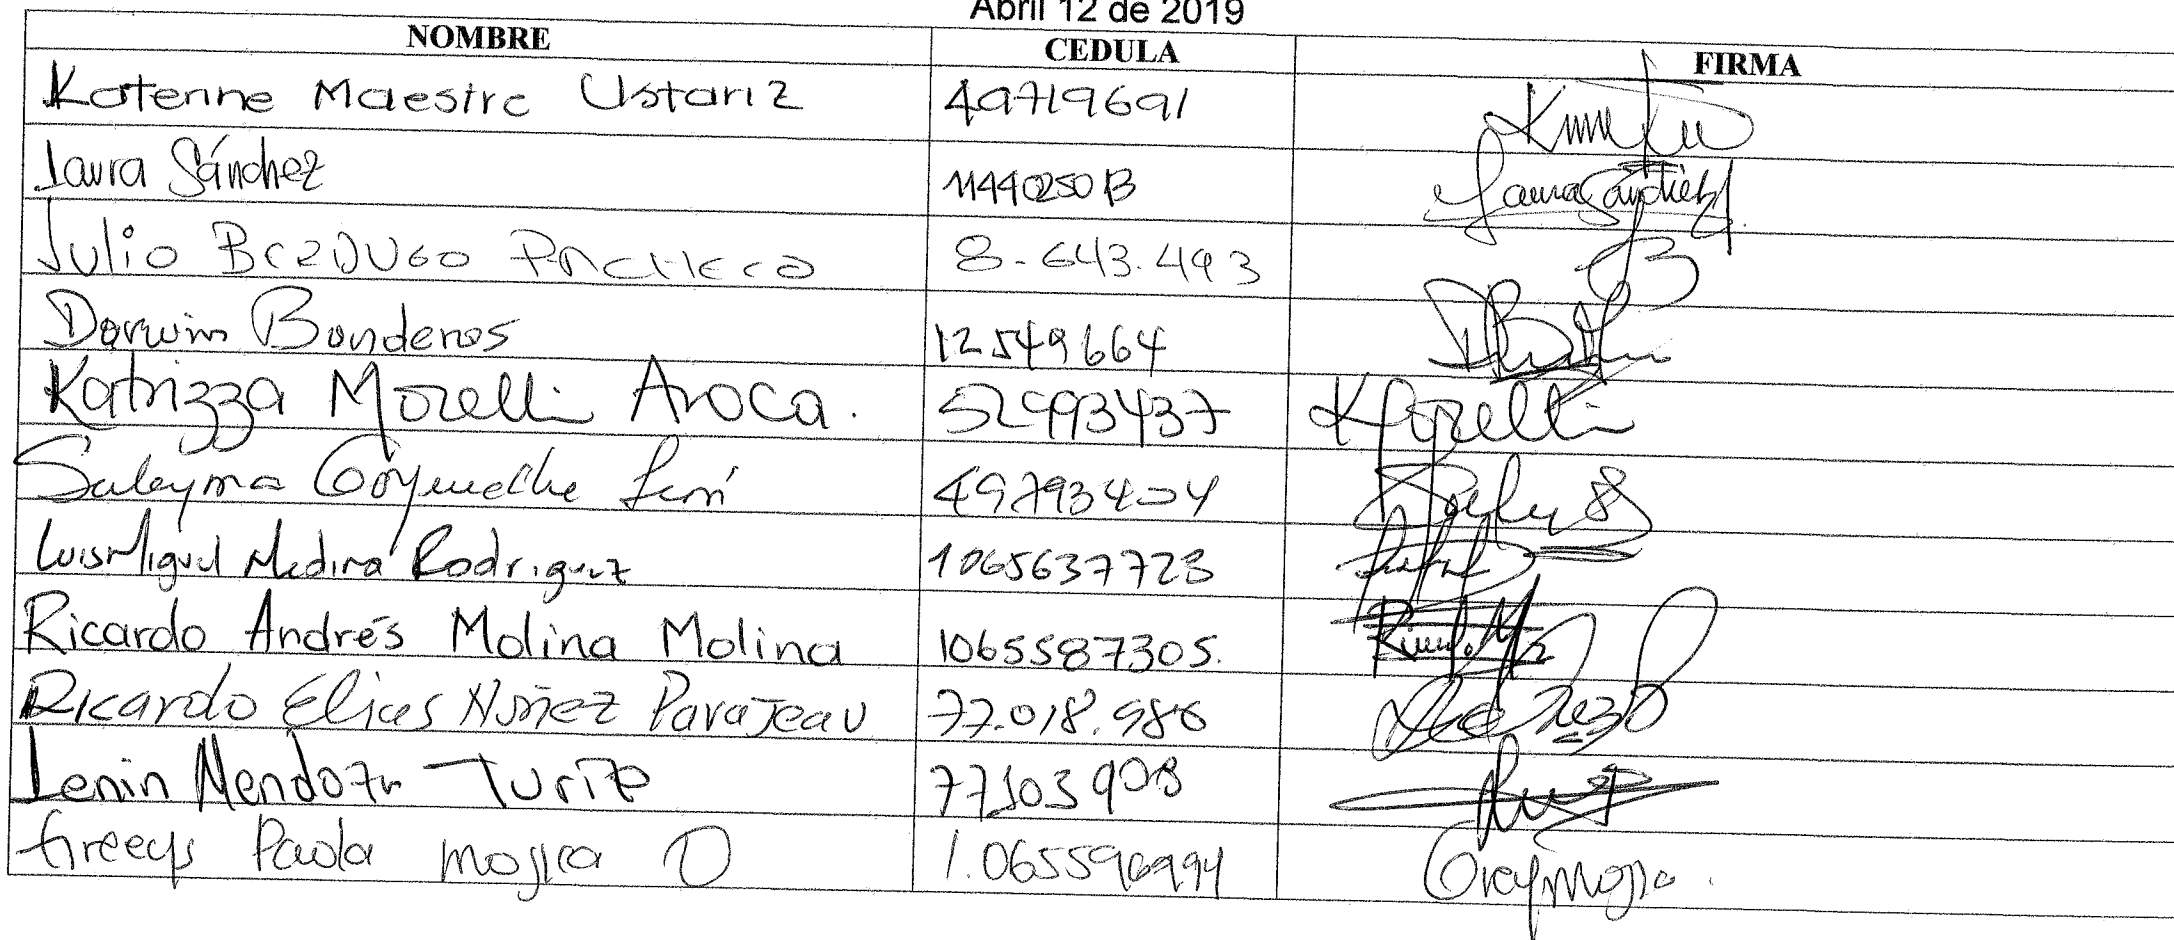 Abril 12 de 2019
NOMBRE CEDULA FIRMA
Katerine Maestre Ustariz 49719691
Laura Sánchez 1144025013 Laura Sánchez
Julio BerDUGO PACHECO 8-643.493
Darwin Banderas 12549664
Katrizza Morelli Aroca. 52993437 KMorelli
Suleyma Goyeneche 49793404
Luis Miguel Medina Rodriguez 1065637723
Ricardo Andrés Molina Molina 1065587305.
Ricardo Elias Nuñez Parajeau 77.018.986
Lenin Mendoza Turizo 77103908
Greeys Paola Mojica O 1.065596994